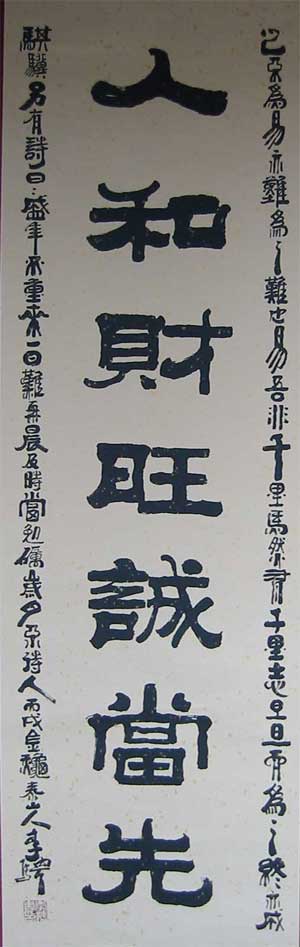 不為易亦難為之難也易吾非千里馬然有千里志旦旦而為之終亦成
人和財旺誠當先
騏驥另有詩曰：盛年不重來一日難再晨及時當勉礪歲月不待人丙戌金穐泰山人李